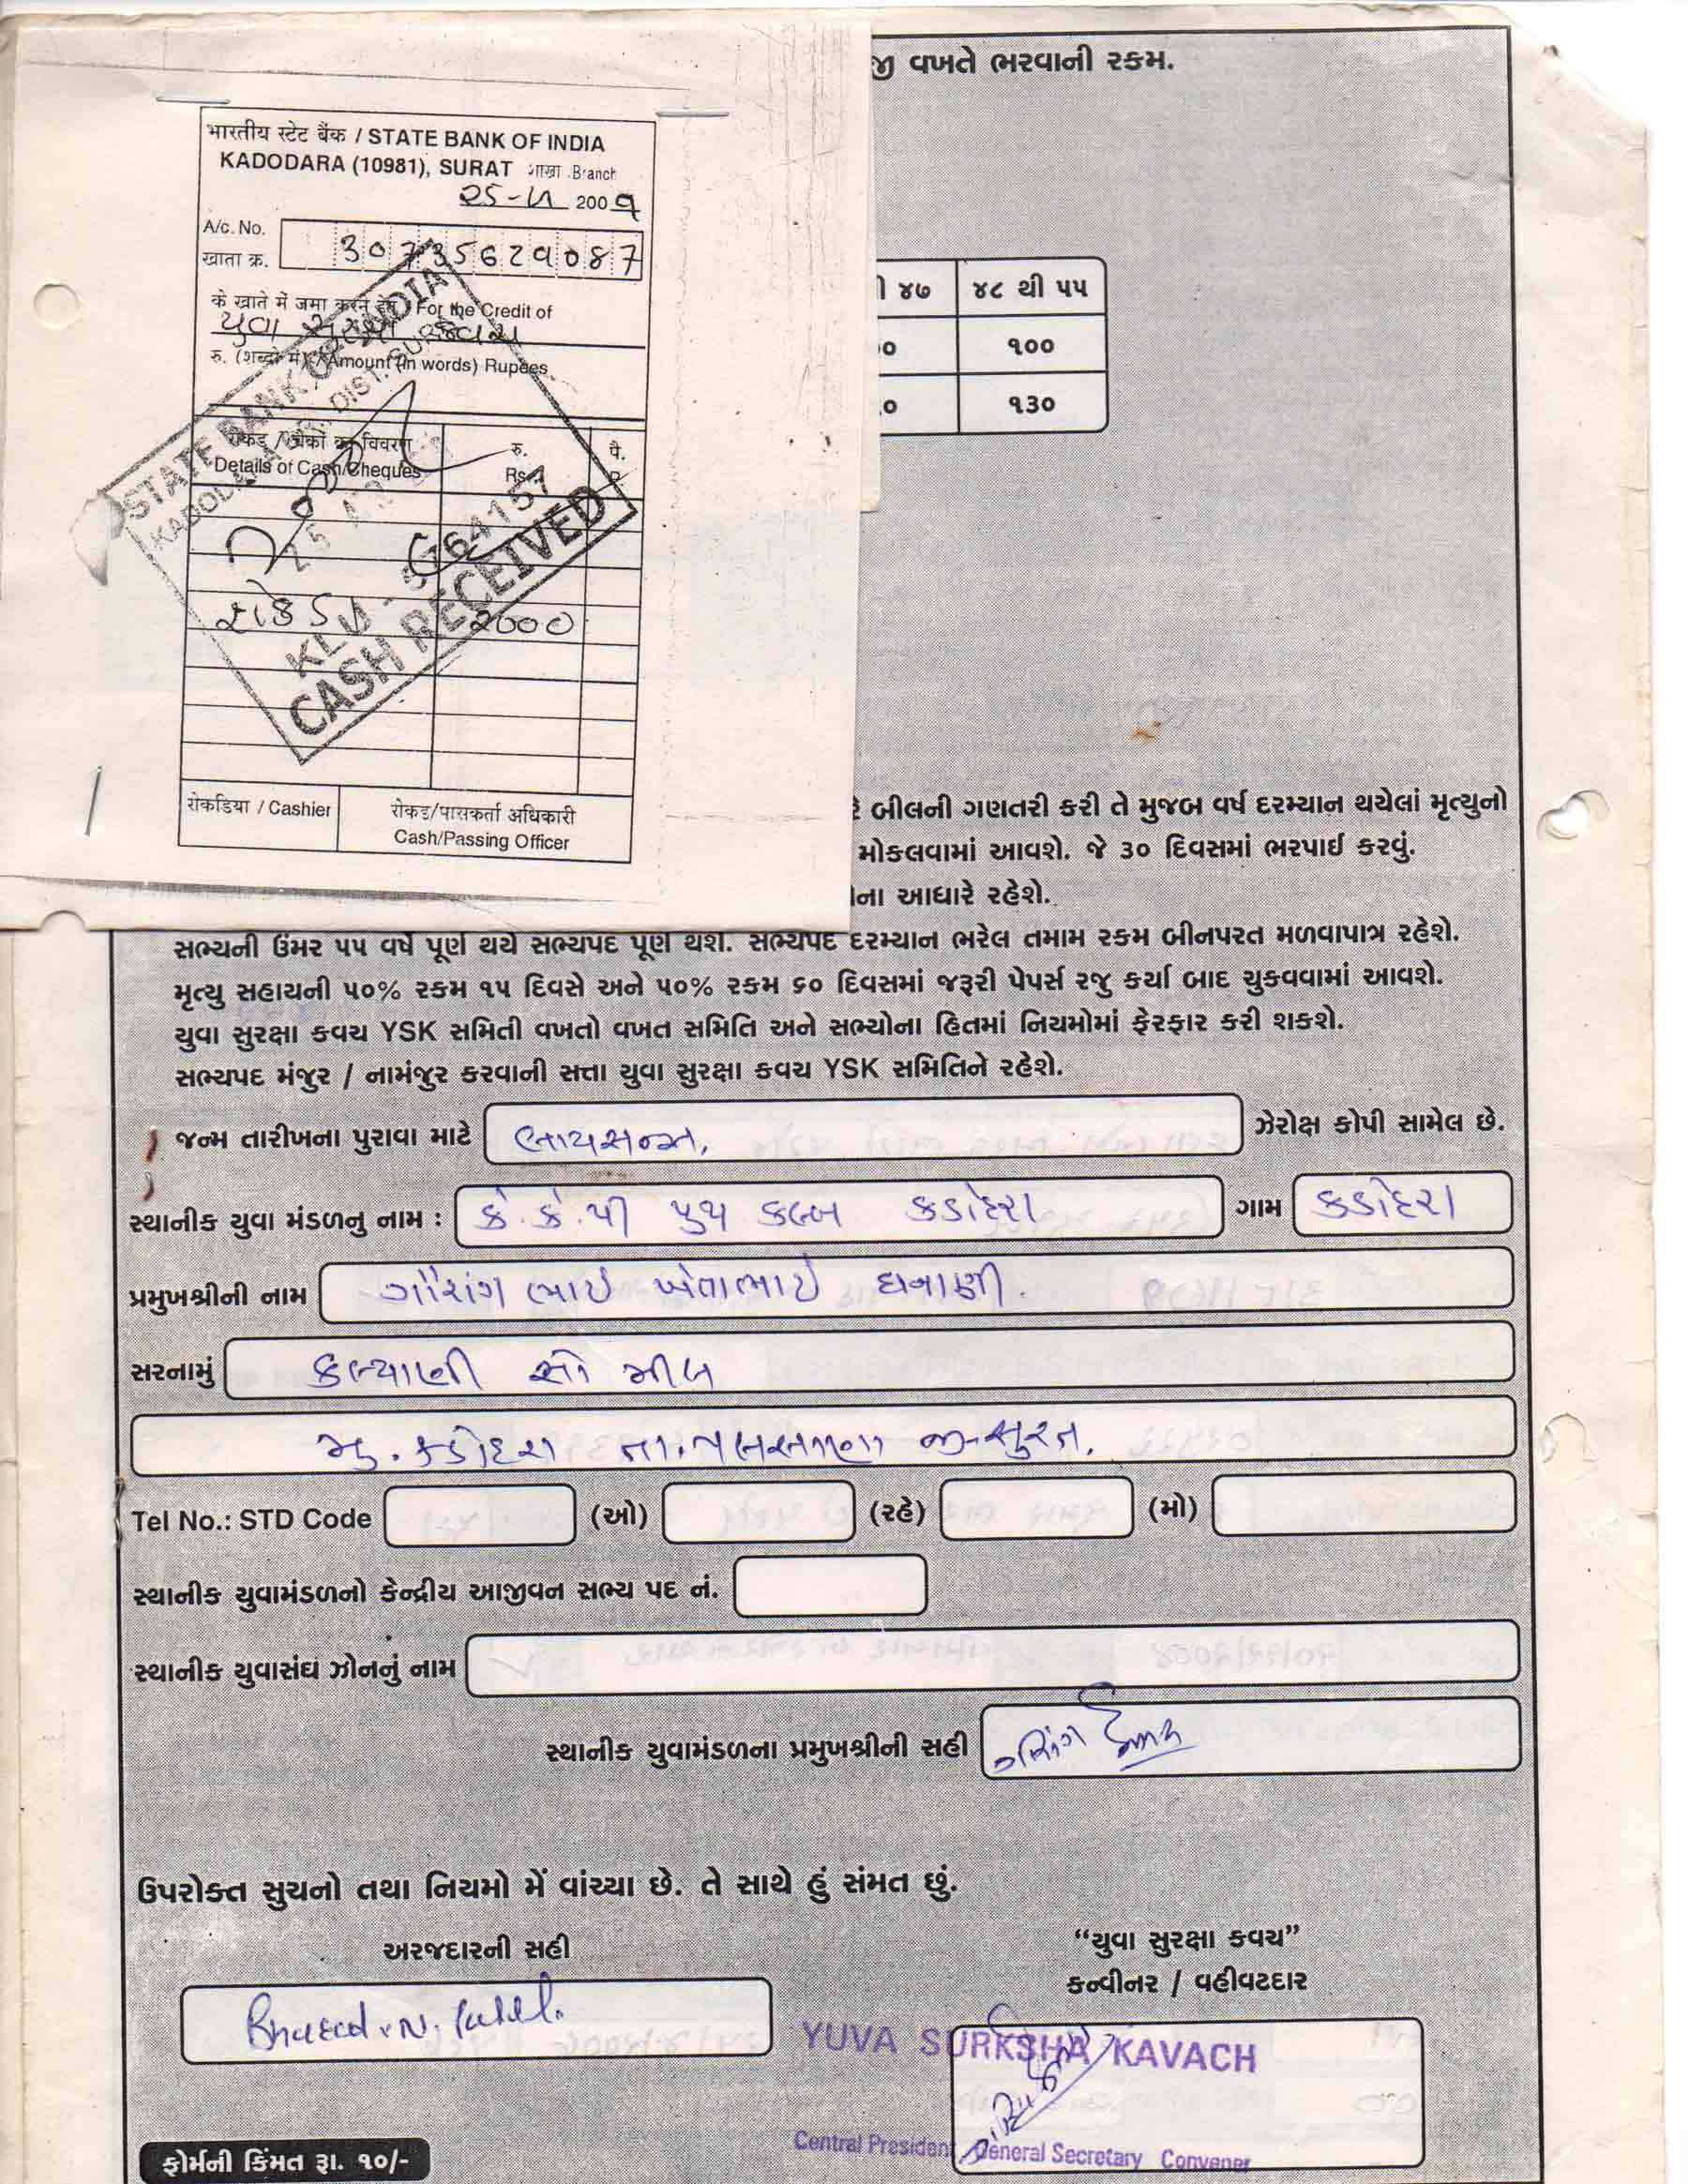 જી વખતે ભરવાની રકમ.
भारतीय स्टेट बैंक / STATE BANK OF INDIA
KADODARA (10981), SURAT शाखा Branch
૨૬-૫ 2009
A/c. No.
खाता क्र.
30735629087
के खाते में जमा करने हेतु / For the Credit of
યુવા સુરક્ષા કવચ
रु. (शब्दों में) / Amount (in words) Rupees
रोकड़ / चेकों का विवरण
Details of Cash/Cheques
रु.
Rs.
पै.
P.
STATE BANK OF INDIA
DIST. SURAT
764157
રોકડા 2000
CASH RECEIVED
रोकडिया / Cashier
रोकड़/पासकर्ता अधिकारी
Cash/Passing Officer
૪૭ ૪૮ થી ૫૫
૦ ૧૦૦
૦ ૧૩૦
બીલની ગણતરી કરી તે મુજબ વર્ષ દરમ્યાન થયેલાં મૃત્યુનો
મોકલવામાં આવશે. જે ૩૦ દિવસમાં ભરપાઈ કરવું.
ના આધારે રહેશે.
સભ્યની ઉંમર ૫૫ વર્ષ પૂર્ણ થયે સભ્યપદ પૂર્ણ થશે. સભ્યપદ દરમ્યાન ભરેલ તમામ રકમ બીનપરત મળવાપાત્ર રહેશે.
મૃત્યુ સહાયની ૫૦% રકમ ૧૫ દિવસે અને ૫૦% રકમ ૬૦ દિવસમાં જરૂરી પેપર્સ રજુ કર્યા બાદ ચુકવવામાં આવશે.
યુવા સુરક્ષા કવચ YSK સમિતી વખતો વખત સમિતિ અને સભ્યોના હિતમાં નિયમોમાં ફેરફાર કરી શકશે.
સભ્યપદ મંજુર / નામંજુર કરવાની સત્તા યુવા સુરક્ષા કવચ YSK સમિતિને રહેશે.
જન્મ તારીખના પુરાવા માટે લાયસન્સ. ઝેરોક્ષ કોપી સામેલ છે.
સ્થાનીક યુવા મંડળનુ નામ : કે.કે.પી યુથ કલબ કડોદરા ગામ કડોદરા
પ્રમુખશ્રીની નામ ગૌરાંગ ભાઈ ખેતાભાઈ ધનાણી.
સરનામું કલ્યાણી સો મીલ
મુ. કડોદરા તા. પલસાણા જી-સુરત.
Tel No.: STD Code (ઓ) (રહે) (મો)
સ્થાનીક યુવામંડળનો કેન્દ્રીય આજીવન સભ્ય પદ નં.
સ્થાનીક યુવાસંઘ ઝોનનું નામ
સ્થાનીક યુવામંડળના પ્રમુખશ્રીની સહી
ઉપરોક્ત સુચનો તથા નિયમો મેં વાંચ્યા છે. તે સાથે હું સંમત છું.
અરજદારની સહી
“યુવા સુરક્ષા કવચ”
કન્વીનર / વહીવટદાર
YUVA SURKSHA KAVACH
Central President General Secretary Convener
ફોર્મની કિંમત રૂા. ૧૦/-